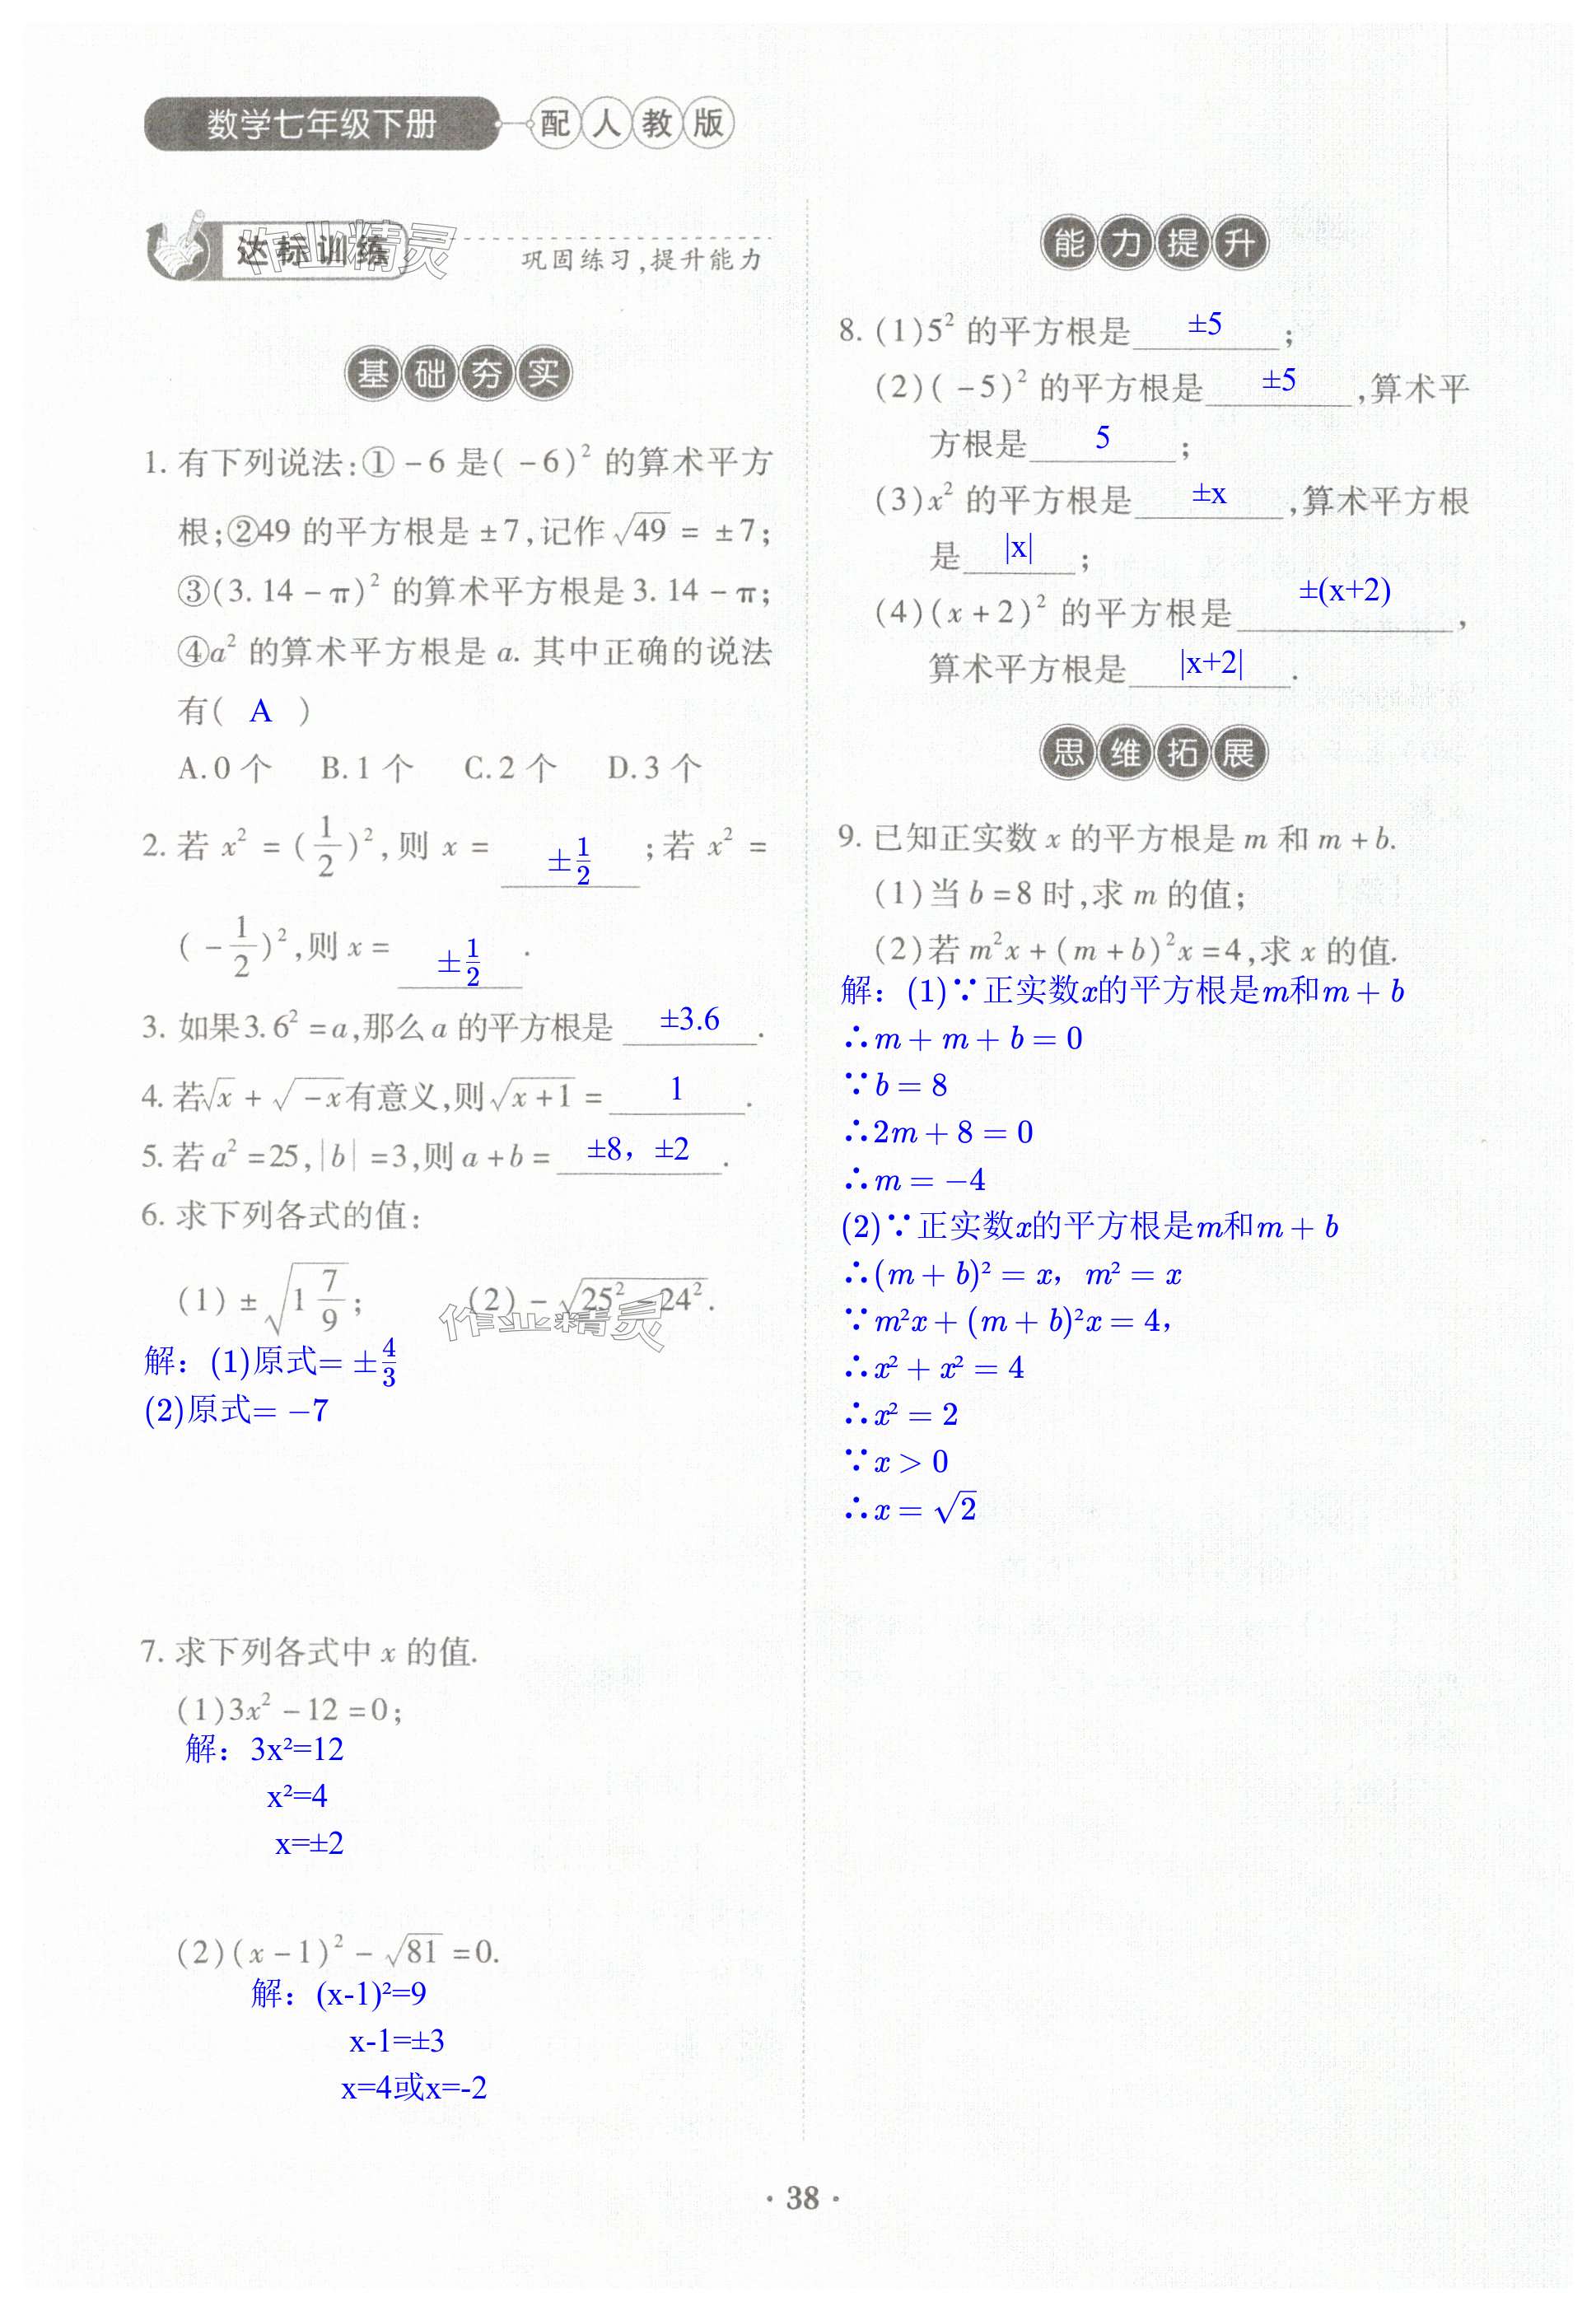 数学七年级下册 配人教版
达标训练 巩固练习,提升能力
作业精灵
基础夯实
1. 有下列说法:①-6是(-6)²的算术平方
根;②49的平方根是±7,记作√49 = ±7;
③(3.14-π)²的算术平方根是3.14-π;
④a²的算术平方根是a. 其中正确的说法
有( A )
A.0个 B.1个 C.2个 D.3个
2. 若x²=(1/2)²,则x= ±1/2 ;若x²=
(-1/2)²,则x= ±1/2 .
3. 如果3.6²=a,那么a的平方根是 ±3.6 .
4. 若√x+√-x有意义,则√x+1= 1 .
5. 若a²=25,|b|=3,则a+b= ±8，±2 .
6. 求下列各式的值:
(1)±√1 7/9; (2)-√25²-24².
作业精灵
解：(1)原式=±4/3
(2)原式=-7
7. 求下列各式中x的值.
(1)3x²-12=0;
解：3x²=12
x²=4
x=±2
(2)(x-1)²-√81=0.
解：(x-1)²=9
x-1=±3
x=4或x=-2
能力提升
8. (1)5²的平方根是 ±5 ;
(2)(-5)²的平方根是 ±5 ,算术平
方根是 5 ;
(3)x²的平方根是 ±x ,算术平方根
是 |x| ;
(4)(x+2)²的平方根是 ±(x+2) ,
算术平方根是 |x+2| .
思维拓展
9. 已知正实数x的平方根是m和m+b.
(1)当b=8时,求m的值;
(2)若m²x+(m+b)²x=4,求x的值.
解：(1)∵正实数x的平方根是m和m+b
∴m+m+b=0
∵b=8
∴2m+8=0
∴m=-4
(2)∵正实数x的平方根是m和m+b
∴(m+b)²=x，m²=x
∵m²x+(m+b)²x=4，
∴x²+x²=4
∴x²=2
∵x>0
∴x=√2
· 38 ·